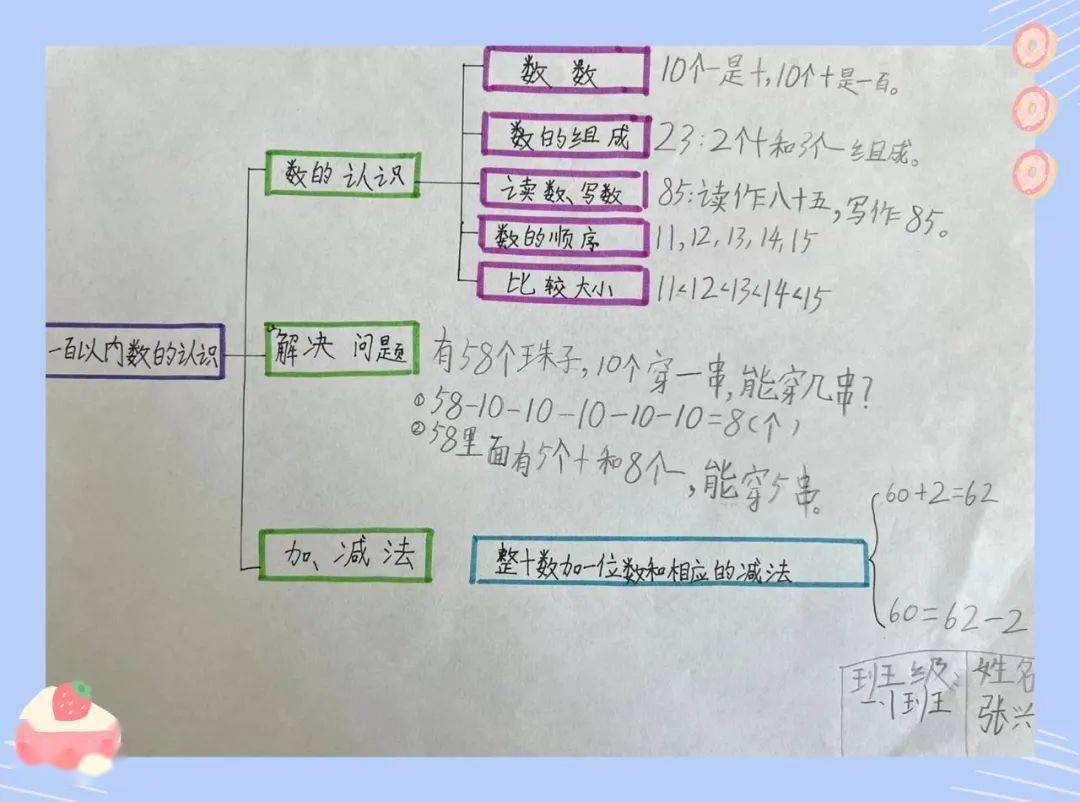 数数
10个一是十,10个十是一百。
数的组成
23:2个十和3个一组成。
数的认识
读数、写数
85:读作八十五,写作85。
数的顺序
11,12,13,14,15
比较大小
11<12<13<14<15
一百以内数的认识
解决问题
有58个珠子,10个穿一串,能穿几串?
①58-10-10-10-10-10=8(个)
②58里面有5个十和8个一,能穿5串。
加、减法
整十数加一位数和相应的减法
60+2=62
60=62-2
班级:
姓名
张兴